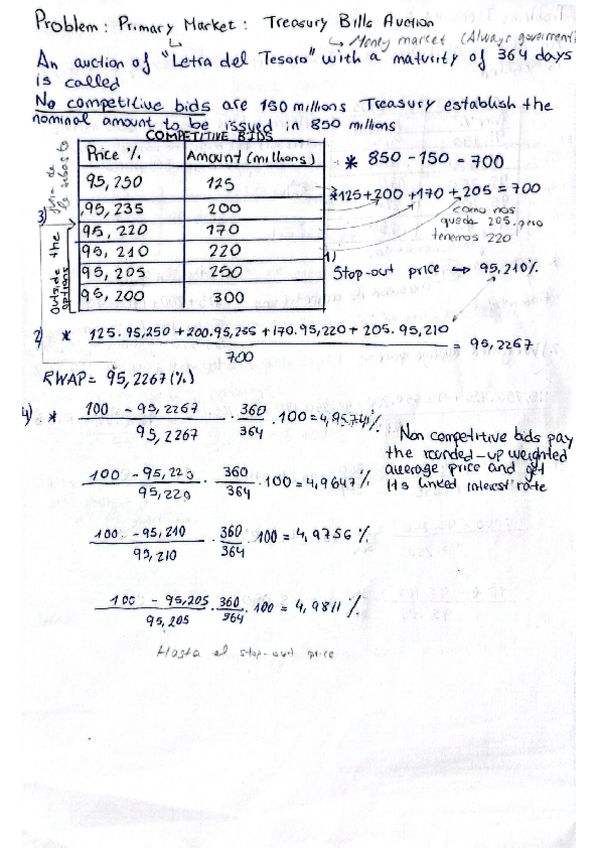 Problem: Primary Market: Treasury Bills Auction
↳ Money market (Always goverment)
An auction of "Letra del Tesoro" with a maturity of 364 days
is called
No competitive bids are 150 millions Treasury establish the
nominal amount to be issued in 850 millions
COMPETITIVE BIDS
Price % Amount (millions)
95,250 125
95,235 200
95,220 170
95,210 220
95,205 250
95,200 300
3)
Outside the options
* 850 - 150 = 700
*125+200+170+205=700
como nos
queda 205, pero
tenemos 220
1)
Stop-out price → 95,210%
2) * 125.95,250+200.95,235+170.95,220+205.95,210 / 700 = 95,2267
RWAP= 95,2267(%)
4) * 100 - 95,2267 / 95,2267 . 360 / 364 . 100=4,9574%
Non competitive bids pay
the rounded-up weighted
average price and get
its linked interest rate
100 - 95,220 / 95,220 . 360 / 364 . 100 = 4,9647%
100 - 95,210 / 95,210 . 360 / 364 . 100 = 4,9756%
100 - 95,205 / 95,205 . 360 / 364 . 100 = 4,9811%
Hasta el stop-out price